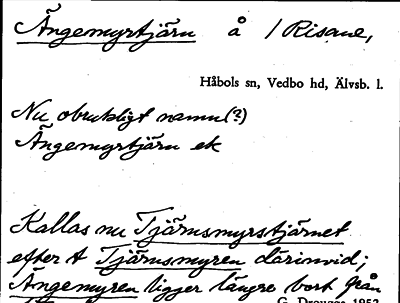 Ängemyrtjärn å / Risane,
Håbols sn, Vedbo hd, Älvsb. l.
Nu obrukligt namn (?)
Ängemyrtjärn ek
Kallas nu Tjärnsmyrstjärnet
efter t Tjärnsmyren därinvid;
Ängemyren ligger längre bort från
G. Drougge 1952